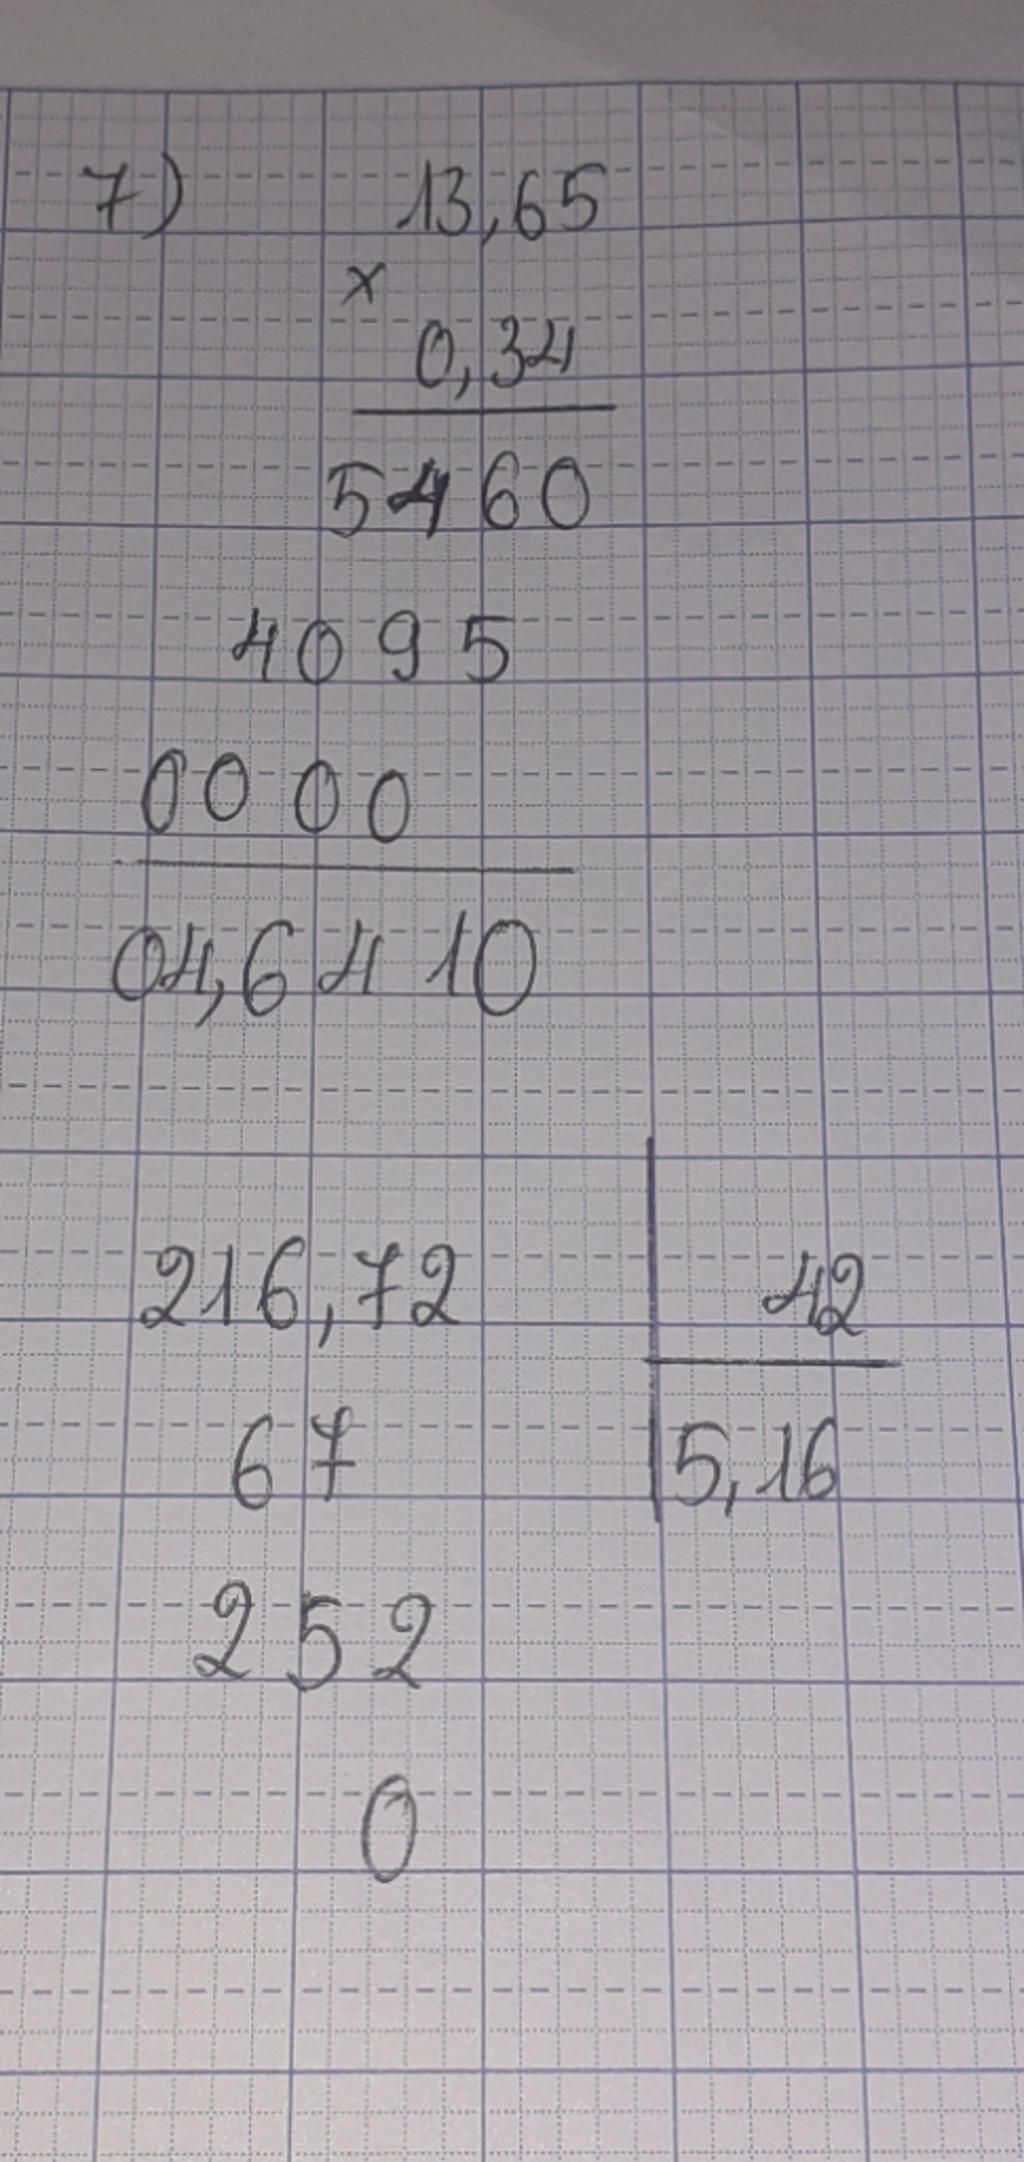 7) 13,65
x
0,34
5460
4095
0000
04,6410
216,72 42
67 5,16
252
0